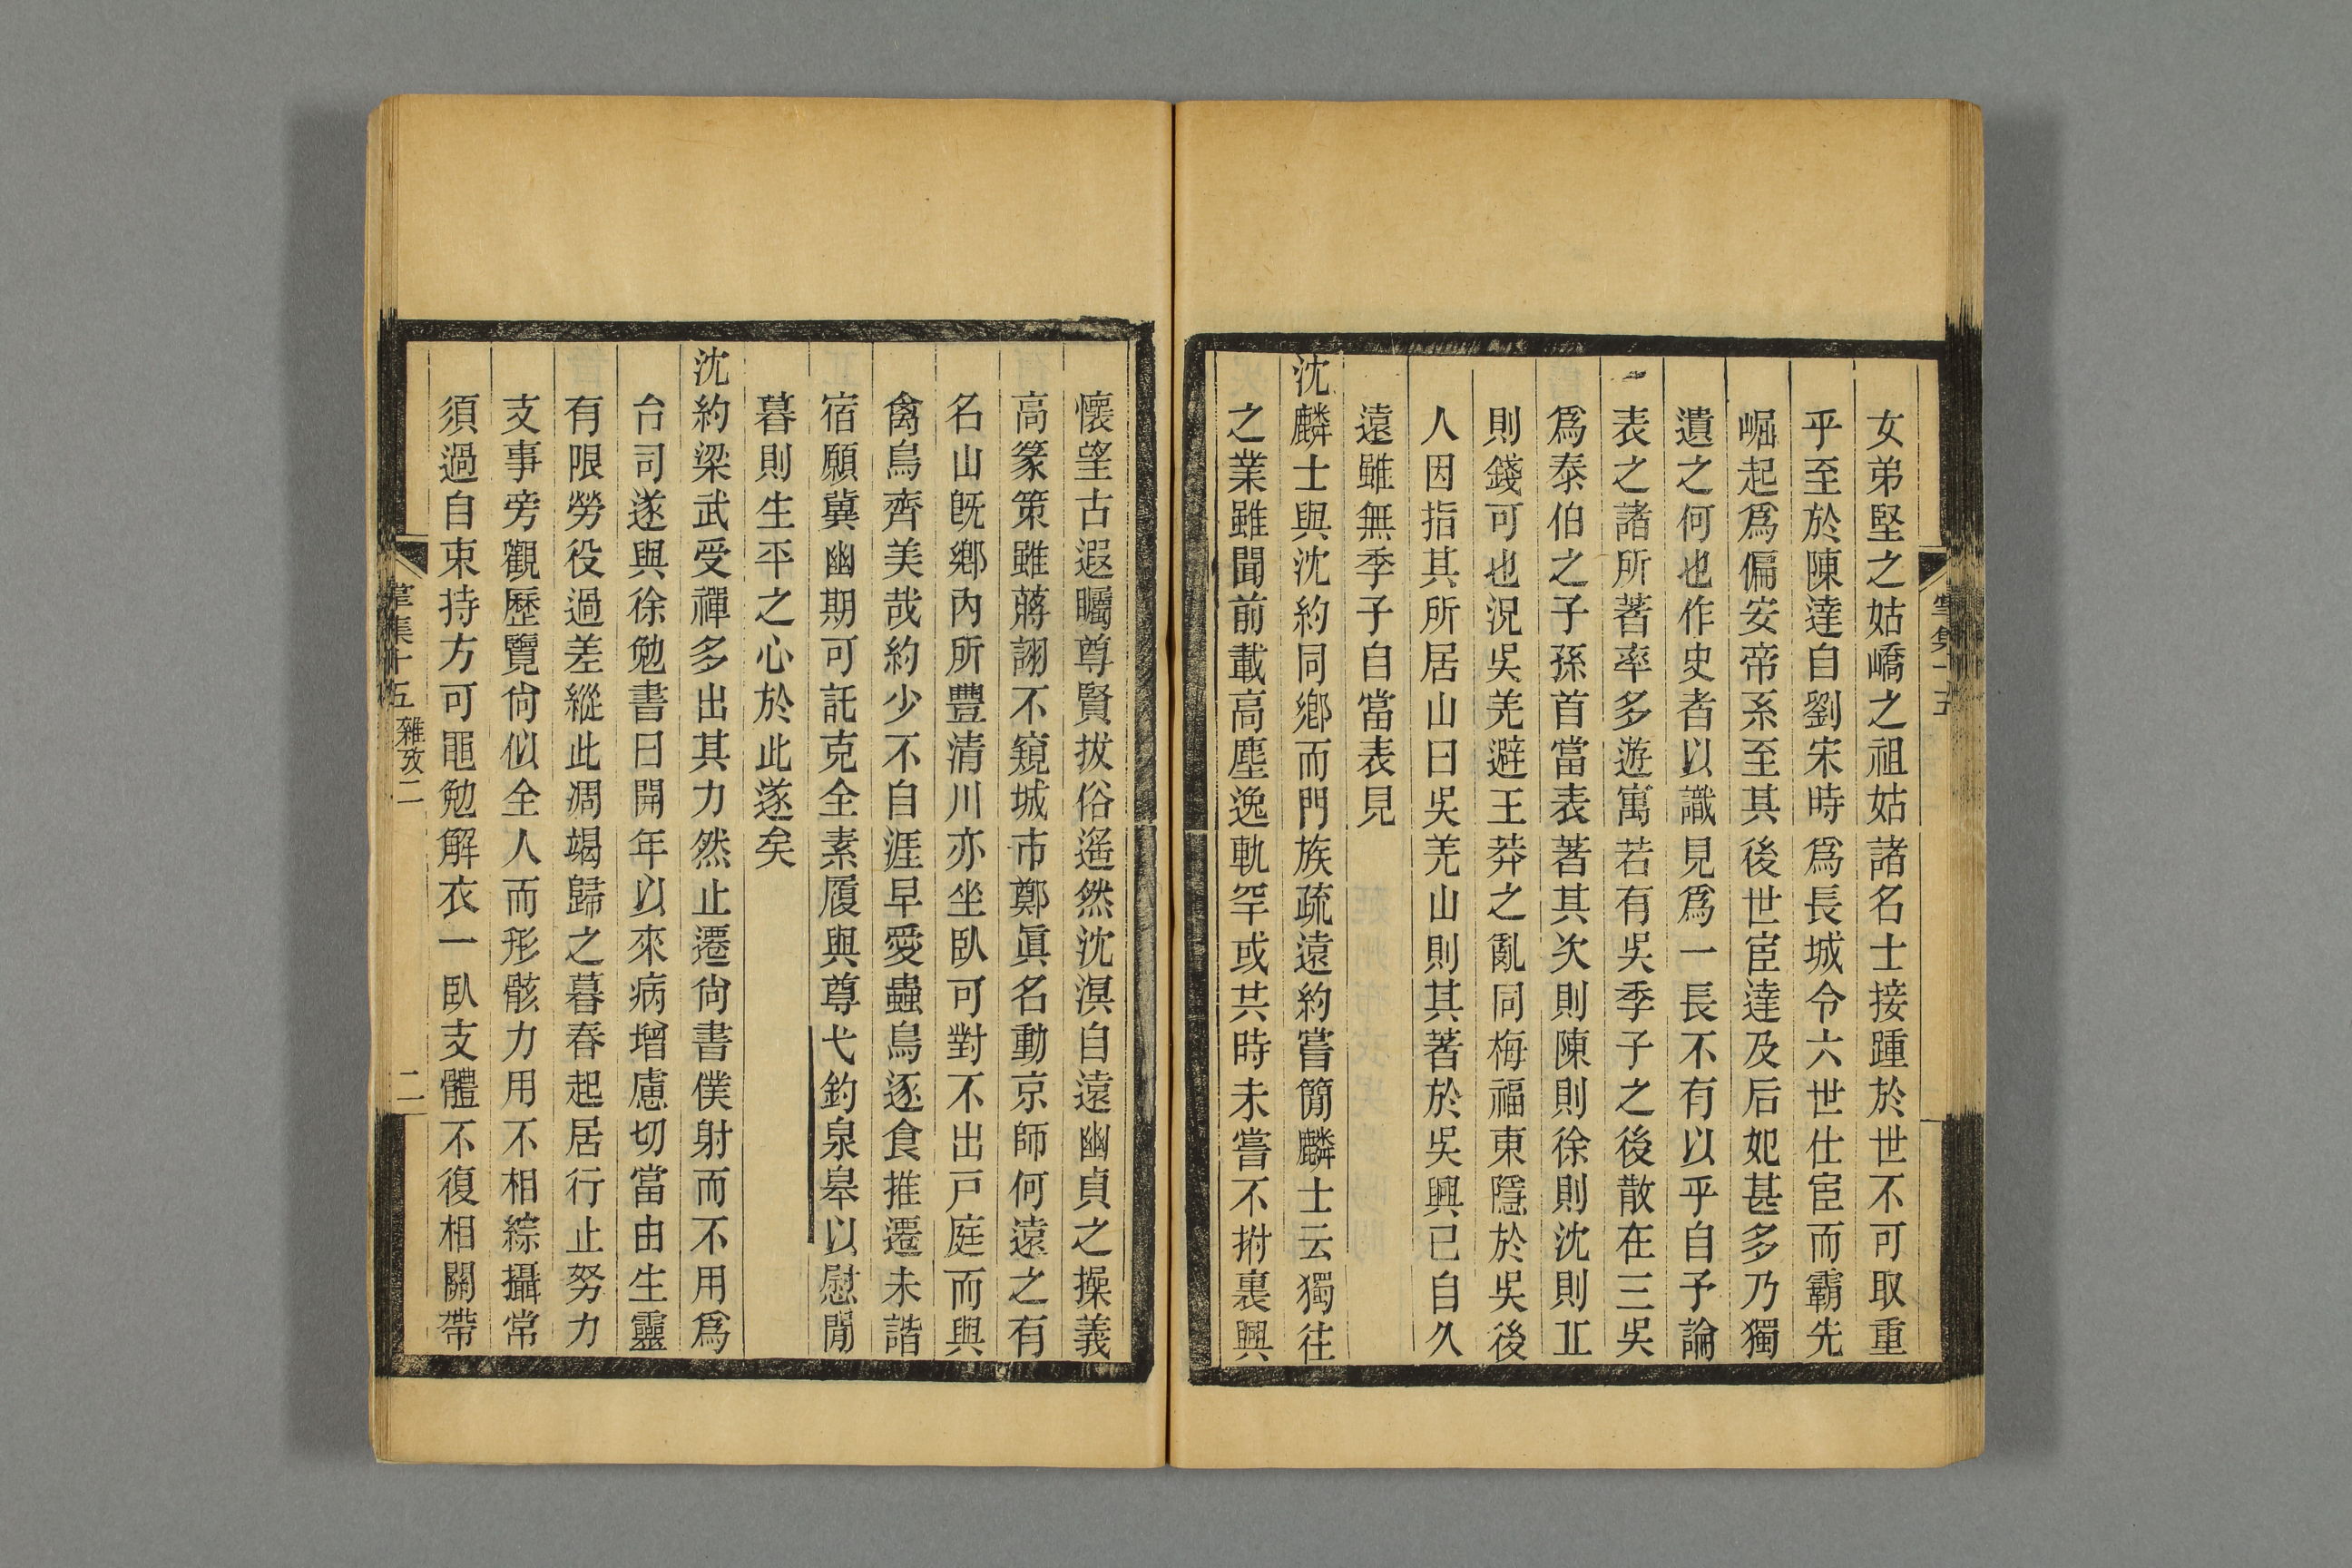 女弟堅之姑嶠之祖姑諸名士接踵於世不可取重
乎至於陳達自劉宋時爲長城令六世仕宦而霸先
崛起爲偏安帝系至其後世宦達及后妃甚多乃獨
遺之何也作史者以識見爲一長不有以乎自予論
表之諸所著率多遊寓若有吳季子之後散在三吳
爲泰伯之子孫首當表著其次則陳則徐則沈則丘
則錢可也況吳羌避王莽之亂同梅福東隱於吳後
人因指其所居山曰吳羌山則其著於吳興己自久
遠雖無季子自當表見
沈麟士與沈約同鄉而門族疏遠約嘗簡麟士云獨往
之業雖聞前載高塵逸軌罕或共時未嘗不拊裏興
懷望古遐矚尊賢拔俗遙然沈溟自遠幽貞之操義
高篆策雖蔣詡不窺城市鄭眞名動京師何遠之有
名山旣鄉內所豐清川亦坐臥可對不出戸庭而與
禽鳥齊美哉約少不自涯早愛蟲鳥逐食推遷未諧
宿願冀幽期可託克全素履與尊弋釣泉皋以慰閒
暮則生平之心於此遂矣
沈約梁武受禪多出其力然止遷尙書僕射而不用爲
台司遂與徐勉書曰開年以來病增慮切當由生靈
有限勞役過差縱此凋竭歸之暮春起居行止努力
支事旁觀歷覽尙似全人而形骸力用不相綜攝常
須過自束持方可黽勉解衣一臥支體不復相關帶
集十五 雜攷二 二